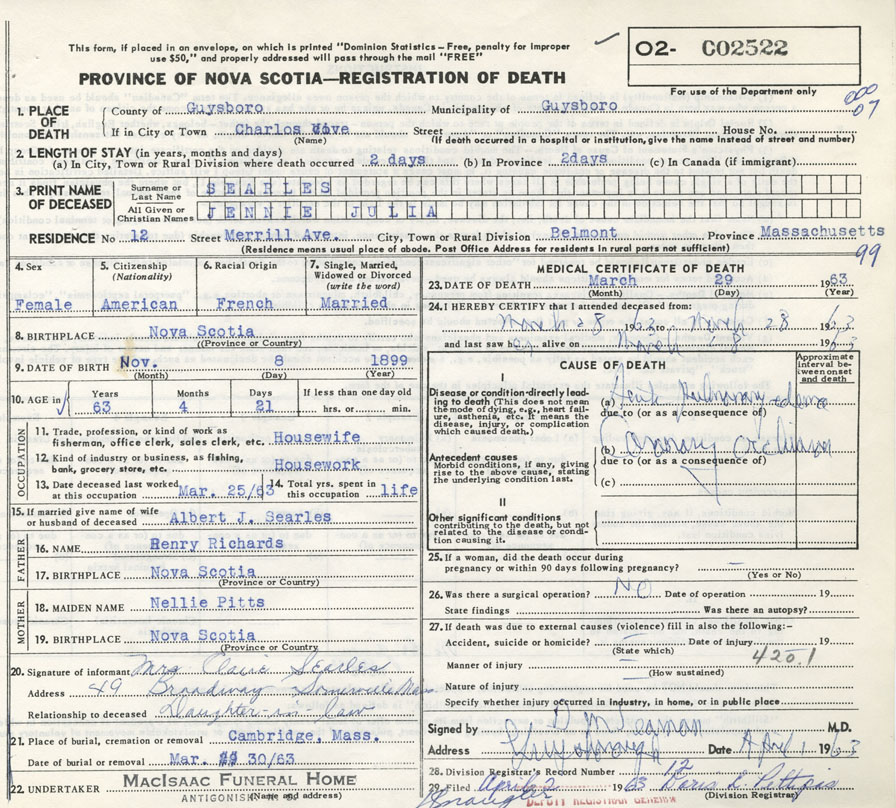 This form, if placed in an envelope, on which is printed "Dominion Statistics - Free, penalty for improper
use $50," and properly addressed will pass through the mail "FREE"
O2- C02522
PROVINCE OF NOVA SCOTIA—REGISTRATION OF DEATH
For use of the Department only
07
1. PLACE OF DEATH
County of Guysboro Municipality of Guysboro
If in City or Town Charlos Cove Street House No.
(Name) (If death occurred in a hospital or institution, give the name instead of street and number)
2. LENGTH OF STAY (in years, months and days)
(a) In City, Town or Rural Division where death occurred 2 days (b) In Province 2days (c) In Canada (if immigrant)
3. PRINT NAME OF DECEASED
Surname or Last Name SEARLES
All Given or Christian Names JENNIE JULIA
RESIDENCE No 12 Street Merrill Ave. City, Town or Rural Division Belmont Province Massachusetts
(Residence means usual place of abode. Post Office Address for residents in rural parts not sufficient)
99
4. Sex
Female
5. Citizenship (Nationality)
American
6. Racial Origin
French
7. Single, Married, Widowed or Divorced (write the word)
Married
8. BIRTHPLACE Nova Scotia
(Province or Country)
9. DATE OF BIRTH Nov. 8 1899
(Month) (Day) (Year)
10. AGE in Years 63 Months 4 Days 21 If less than one day old hrs. or min.
OCCUPATION
11. Trade, profession, or kind of work as
fisherman, office clerk, sales clerk, etc. Housewife
12. Kind of industry or business, as fishing,
bank, grocery store, etc. Housework
13. Date deceased last worked at this occupation Mar. 25/63
14. Total yrs. spent in this occupation life
15. If married give name of wife
or husband of deceased Albert J. Searles
FATHER
16. NAME Henry Richards
17. BIRTHPLACE Nova Scotia
(Province or Country)
MOTHER
18. MAIDEN NAME Nellie Pitts
19. BIRTHPLACE Nova Scotia
(Province or Country
20. Signature of informant Mrs Claire Searles
Address 49 Broadway Somerville Mass.
Relationship to deceased Daughter-in law
21. Place of burial, cremation or removal Cambridge, Mass.
Date of burial or removal Mar. 30/63
22. UNDERTAKER MACISAAC FUNERAL HOME
ANTIGONISH
(Name and address)
MEDICAL CERTIFICATE OF DEATH
23. DATE OF DEATH March 29 1963
(Month) (Day) (Year)
24. I HEREBY CERTIFY that I attended deceased from:
March 28 1963 to March 28 1963
and last saw her alive on March 28 1963
CAUSE OF DEATH
Approximate interval between onset and death
I
Disease or condition directly leading to death (This does not mean
the mode of dying, e.g., heart failure, asthenia, etc. It means the
disease, injury, or complication which caused death.)
(a) Acute Pulmonary edema
due to (or as a consequence of)
Antecedent causes
Morbid conditions, if any, giving rise to the above cause, stating
the underlying condition last.
(b) Coronary Occlusion
due to (or as a consequence of)
(c)
II
Other significant conditions
contributing to the death, but not related to the disease or condition causing it.
25. If a woman, did the death occur during
pregnancy or within 90 days following pregnancy? —
(Yes or No)
26. Was there a surgical operation? NO Date of operation 19
State findings Was there an autopsy?
27. If death was due to external causes (violence) fill in also the following:-
Accident, suicide or homicide? Date of injury 19
(State which)
420.1
Manner of injury
(How sustained)
Nature of injury
Specify whether injury occurred in industry, in home, or in public place
Signed by M.D.
Address Guysborough Date April 1 1963
28. Division Registrar's Record Number 12
29. Filed April 2 1963 Doris L Pettipas
(Division Registrar)
DEPUTY REGISTRAR GENERAL